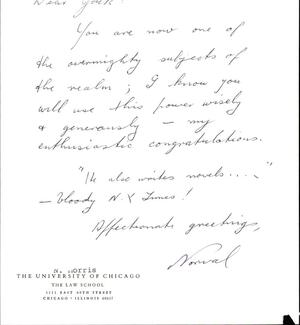 Dear Jack:
You are now one of
the overmighty subjects of
the realm; I know you
will use this power wisely
& generously — my
enthusiastic congratulations.
"He also writes novels...."
— Bloody N.Y Times!
Affectionate greetings,
Norval
N. Morris
THE UNIVERSITY OF CHICAGO
THE LAW SCHOOL
1111 EAST 60TH STREET
CHICAGO · ILLINOIS 60637